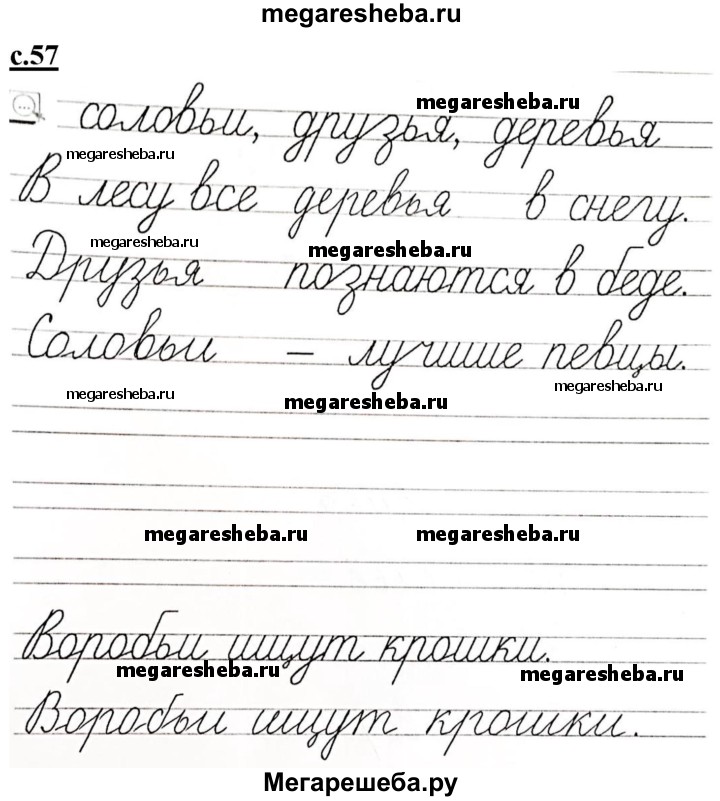 megaresheba.ru
с.57
megaresheba.ru
соловьи, друзья, деревья
megaresheba.ru
В лесу все деревья в снегу.
megaresheba.ru
megaresheba.ru
Друзья познаются в беде.
Соловьи – лучшие певцы.
megaresheba.ru
megaresheba.ru
megaresheba.ru
megaresheba.ru
megaresheba.ru
Воробьи ищут крошки.
megaresheba.ru
megaresheba.ru
Воробьи ищут крошки.
Мегарешеба.ру